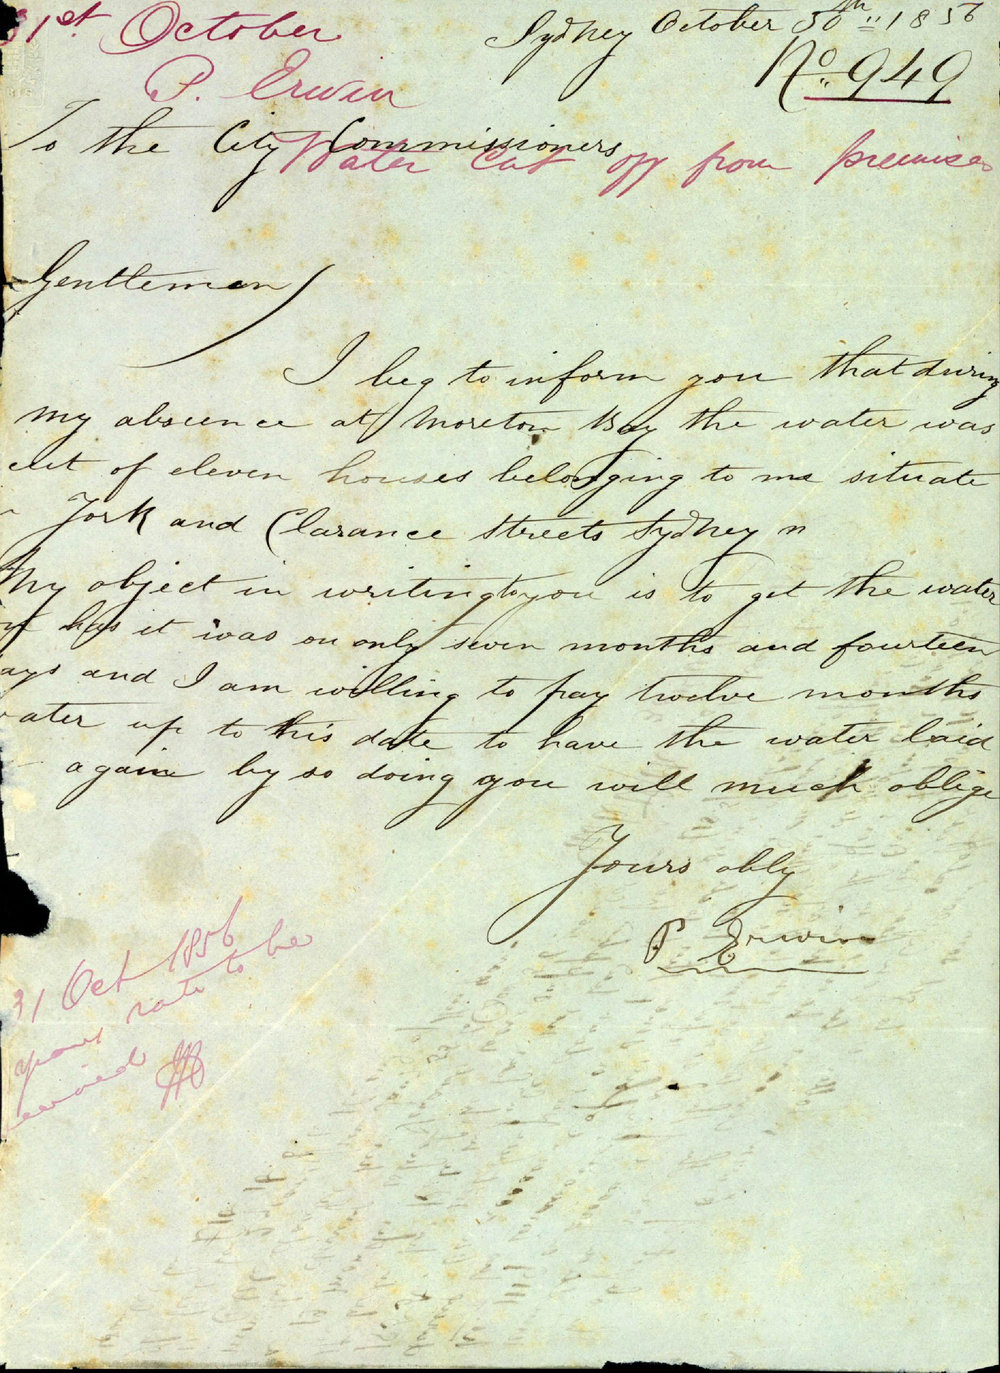 31st October
Sydney October 30th 1856
No. 949
P. Erwin
To the City Commissioners
Water Cut off from premises
Gentlemen
I beg to inform you that during
my absence at Moreton Bay the water was
cut of eleven houses belonging to me situate
York and Clarance Streets Sydney
My object in writing to you is to get the water
has it was on only seven months and fourteen
ays and I am willing to pay twelve months
ater up to this date to have the water laid
again by so doing you will much oblige
Yours obly
P Erwin
31 Oct 1856
years rate to be